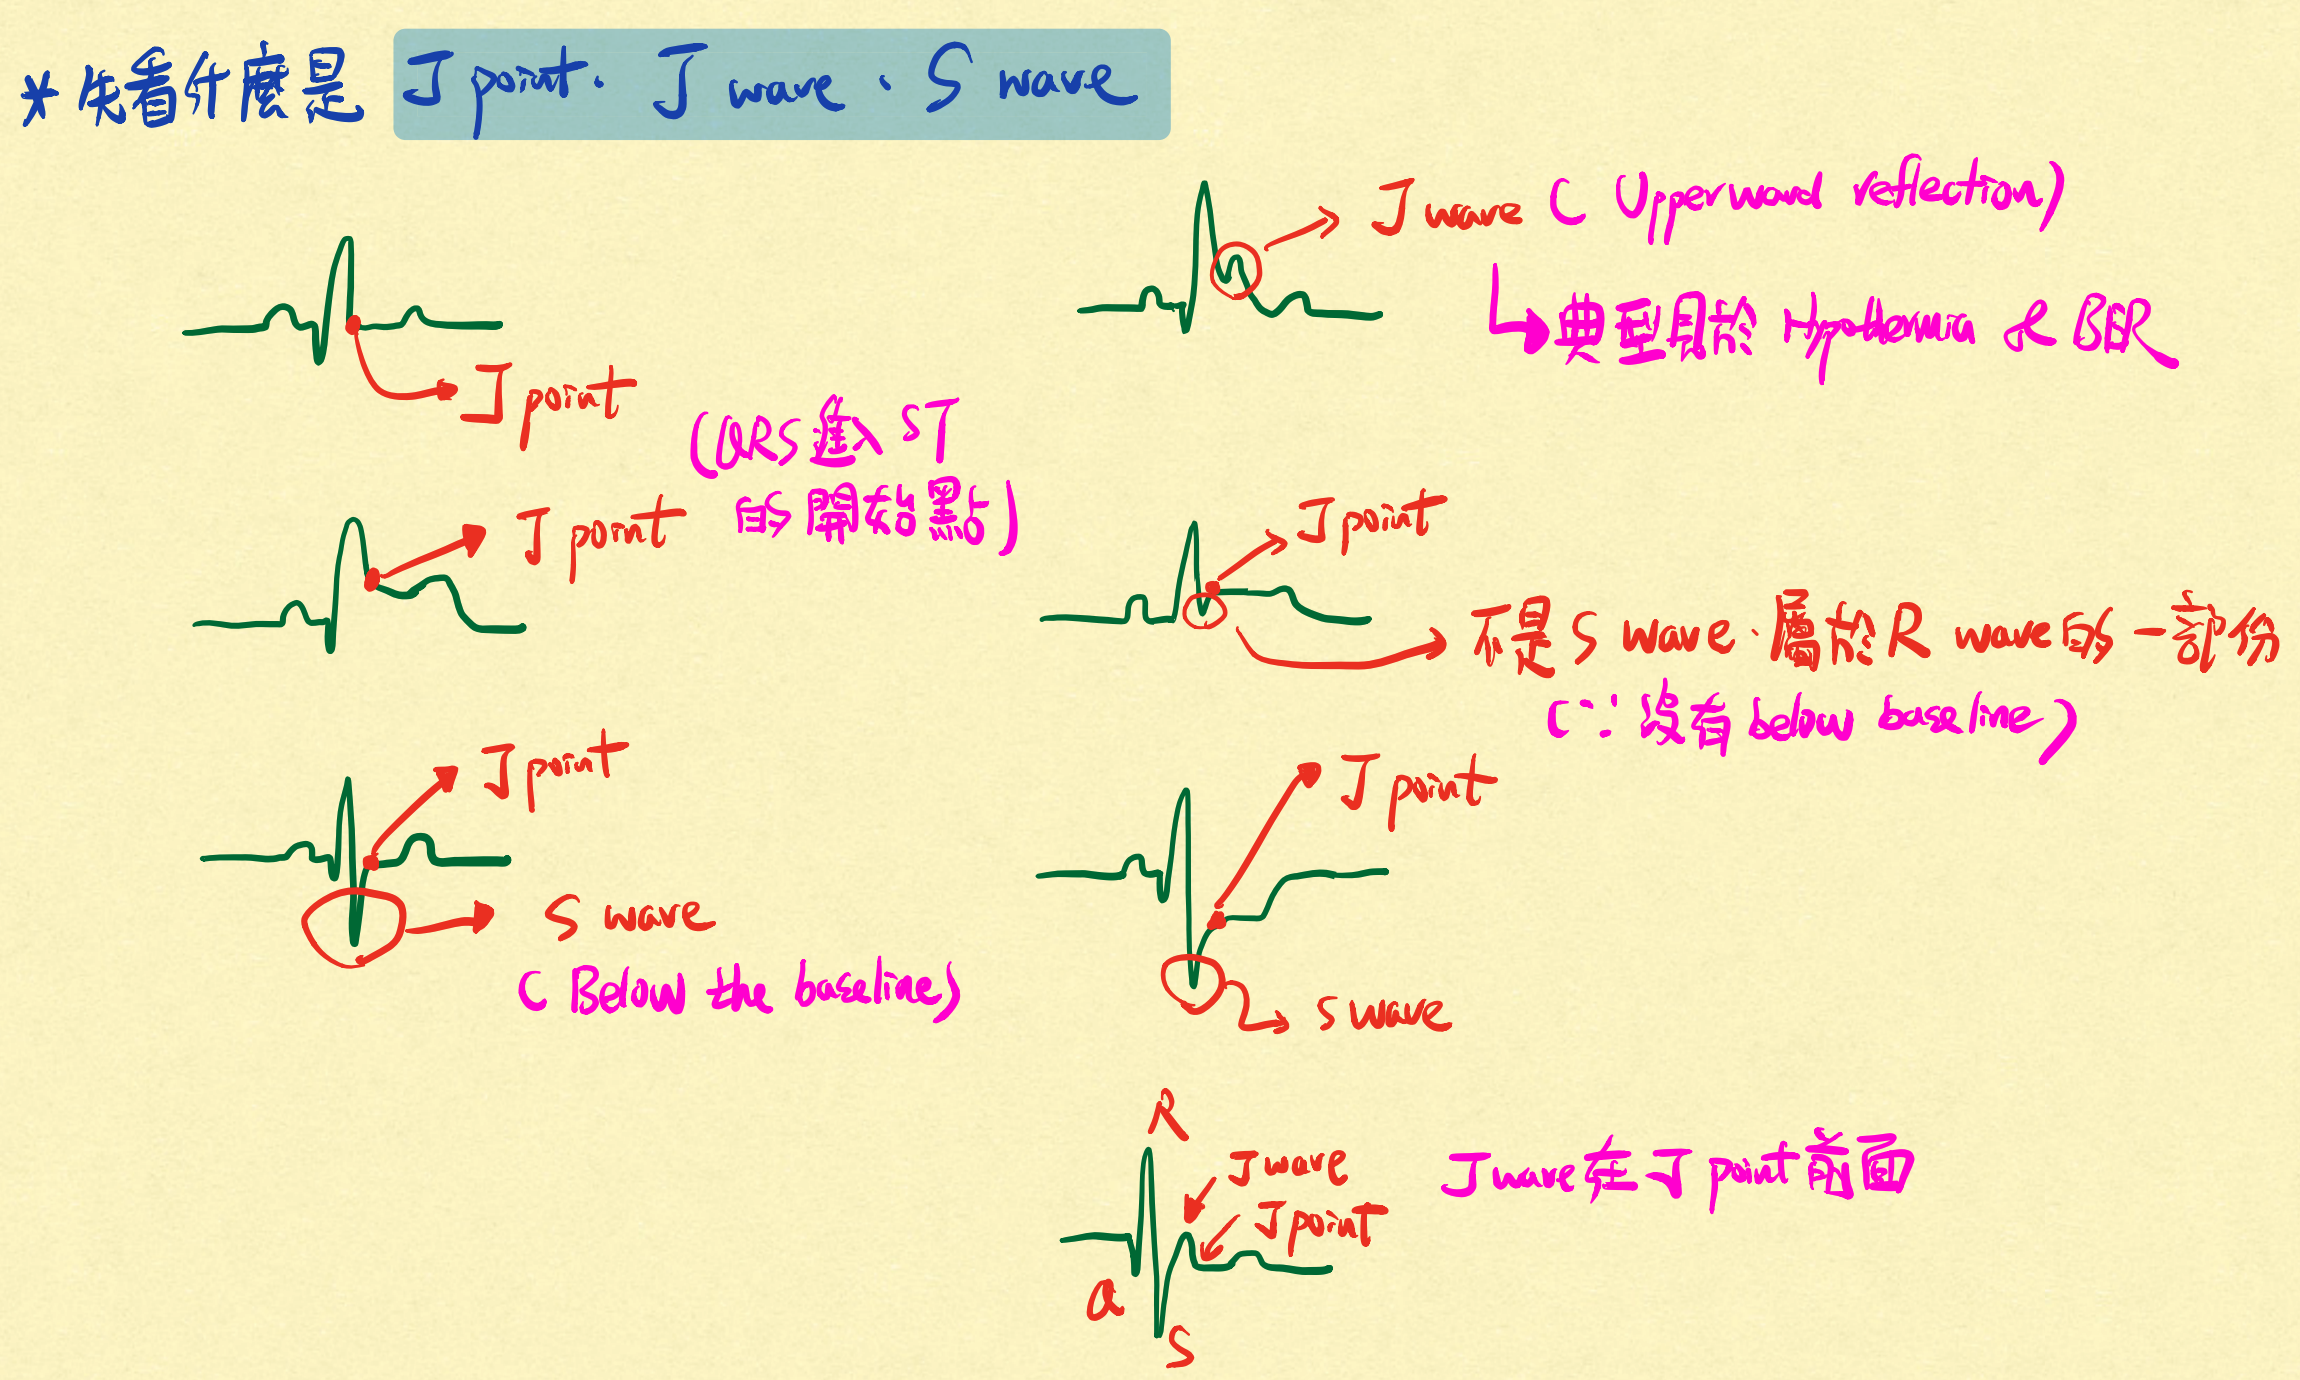 *先看什麼是 J point、J wave、S wave
J point
(QRS進入ST
的開始點)
J point
J point
S wave
(Below the baseline)
J wave (Upperward reflection)
典型見於 Hypothermia & BER
J point
不是 S wave、屬於 R wave 的一部份
(∵沒有 below baseline)
J point
S wave
R
J wave
J point
Q
S
J wave在J point前面